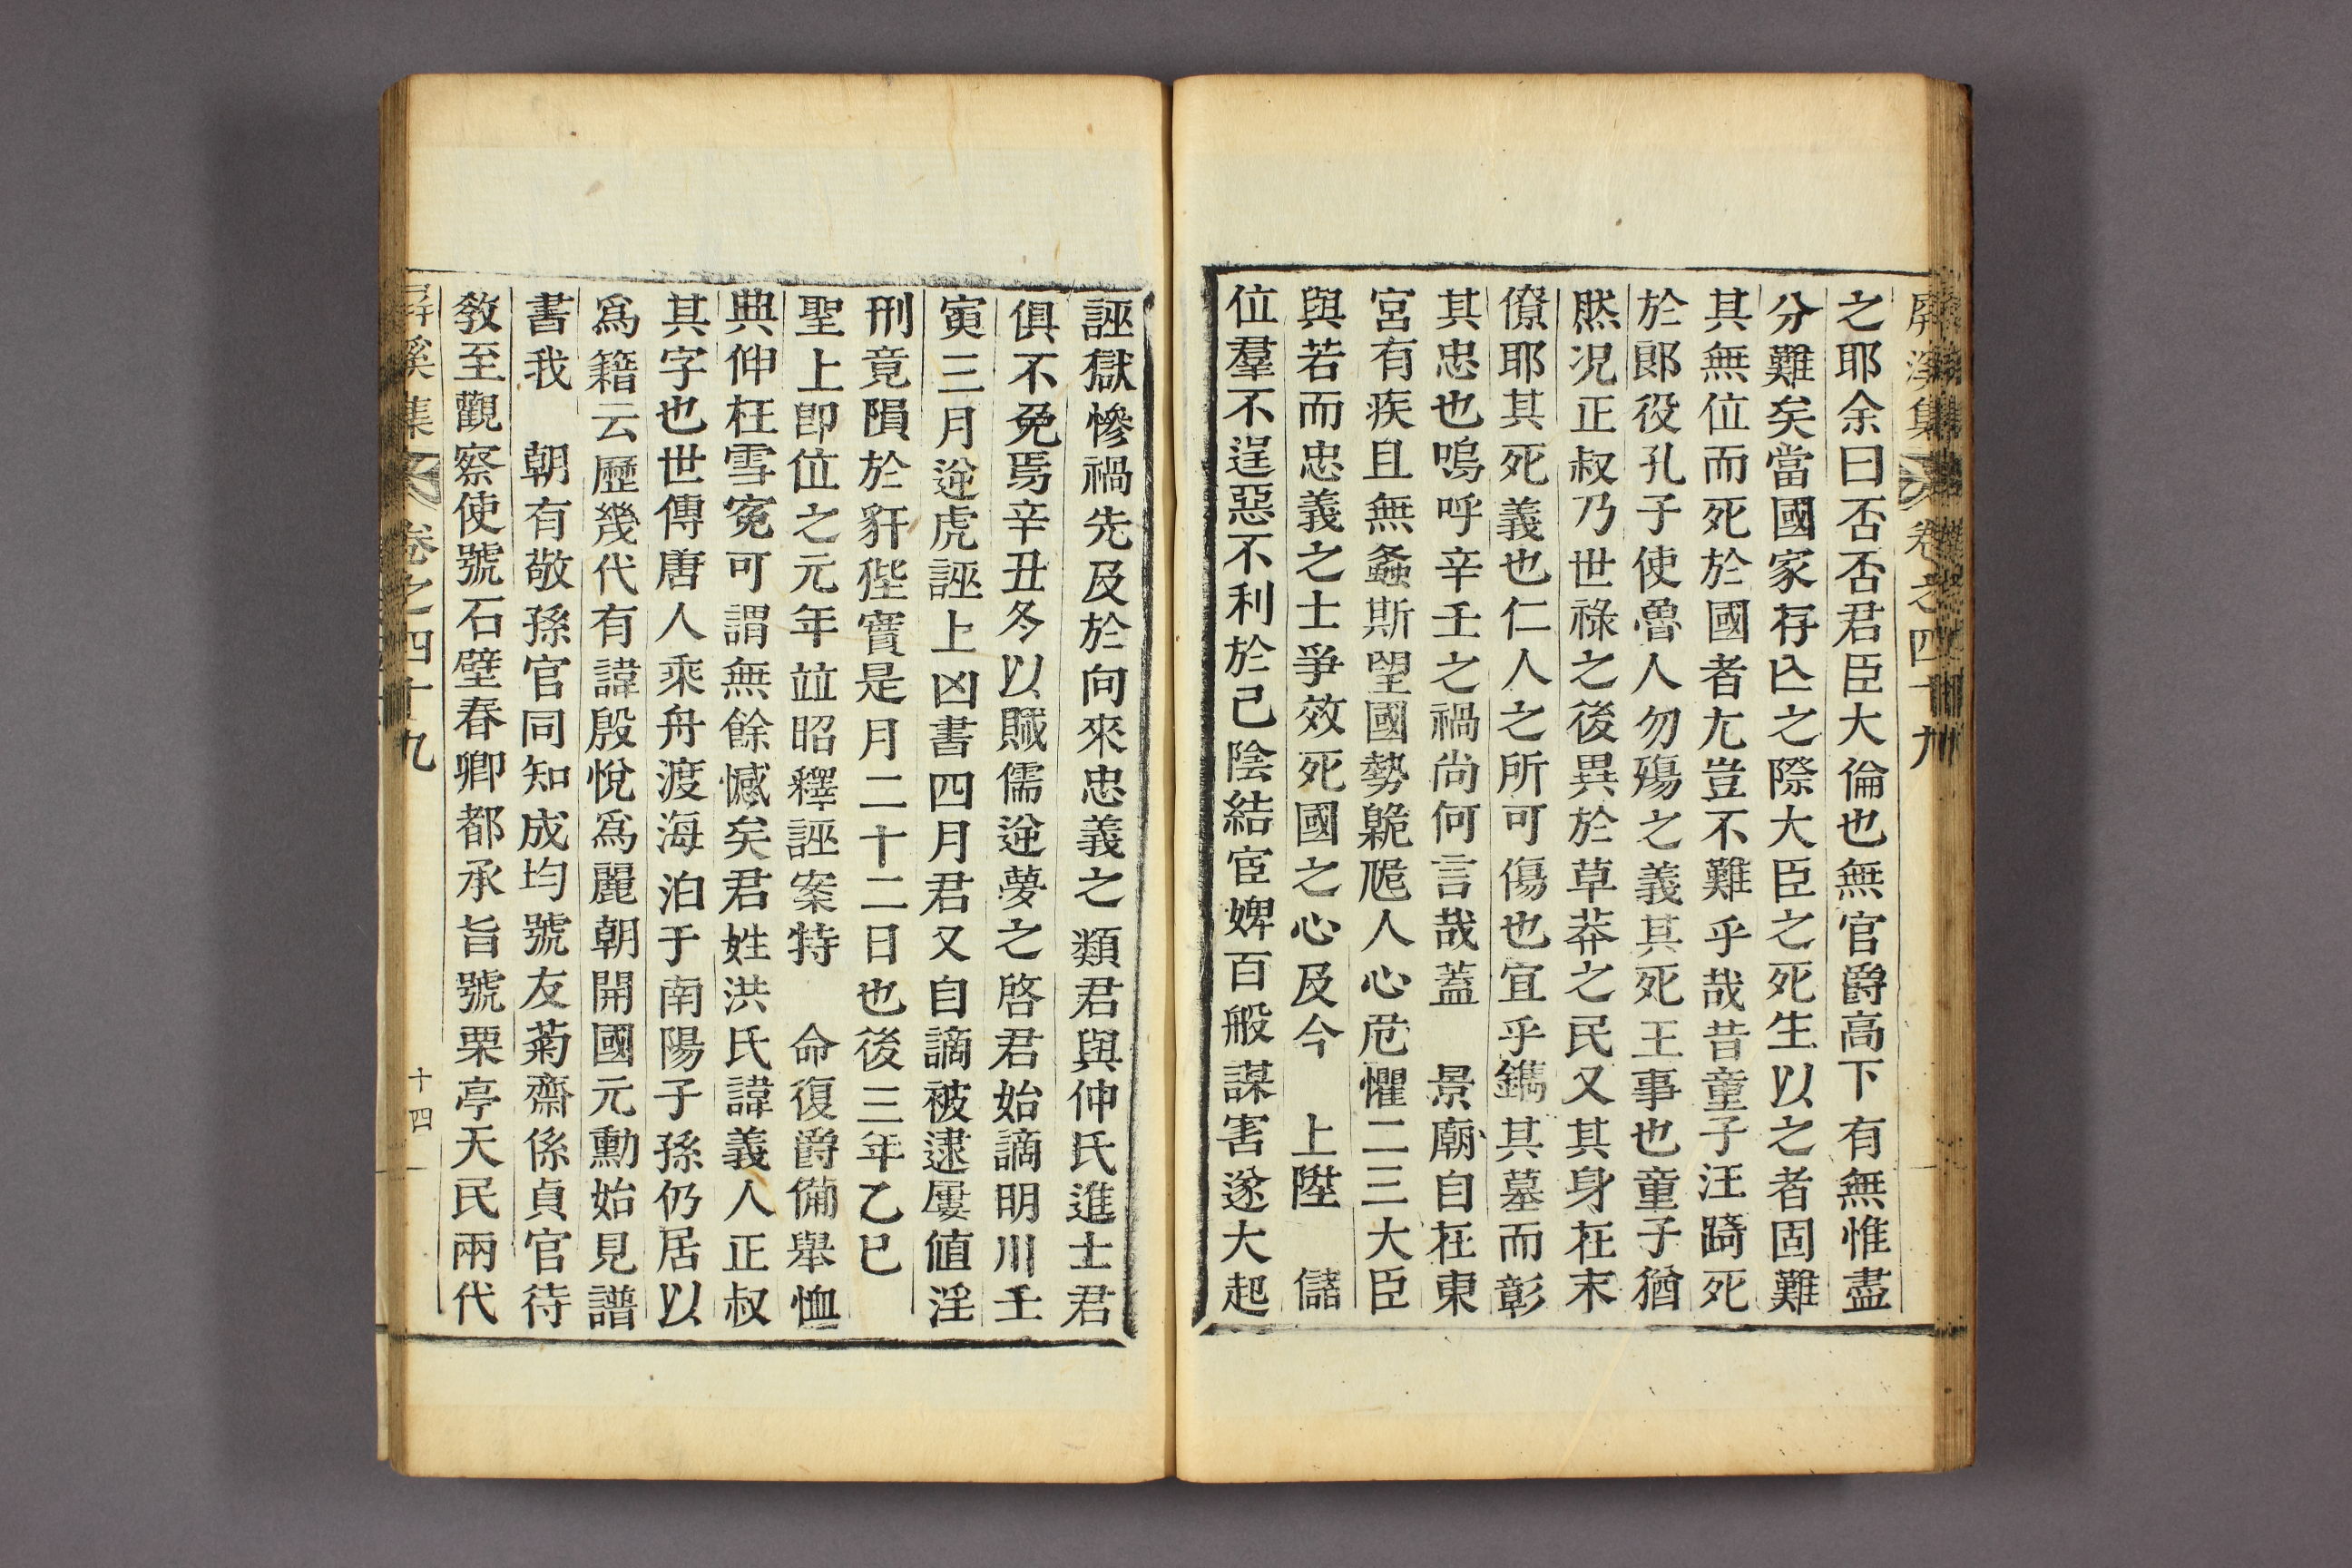 屏溪集 卷之四十九
之耶余曰否否君臣大倫也無官爵高下有無惟盡
分難矣當國家存亾之際大臣之死生以之者固難
其無位而死於國者尤豈不難乎哉昔童子汪踦死
於郞役孔子使魯人勿殤之義其死王事也童子猶
然况正叔乃世祿之後異於草莽之民又其身在末
僚耶其死義也仁人之所可傷也宜乎鐫其墓而彰
其忠也嗚呼辛壬之禍尙何言哉蓋 景廟自在東
宮有疾且無螽斯望國勢臲卼人心危懼二三大臣
與若而忠義之士爭效死國之心及今 上陞 儲
位羣不逞惡不利於己陰結宦婢百般謀害遂大起
誣獄慘禍先及於向來忠義之類君與仲氏進士君
俱不免焉辛丑冬以贓儒逆夢之啓君始謫明川壬
寅三月逆虎誣上凶書四月君又自謫被逮屢値淫
刑竟隕於犴狴實是月二十二日也後三年乙巳
聖上卽位之元年並昭釋誣案特 命復爵備舉恤
典伸枉雪寃可謂無餘憾矣君姓洪氏諱義人正叔
其字也世傳唐人乘舟渡海泊于南陽子孫仍居以
爲籍云歷幾代有諱殷悅爲麗朝開國元勳始見譜
書我 朝有敬孫官同知成均號友菊齋係貞官待
敎至觀察使號石壁春卿都承旨號栗亭天民兩代
屏溪集 卷之四十九 十四